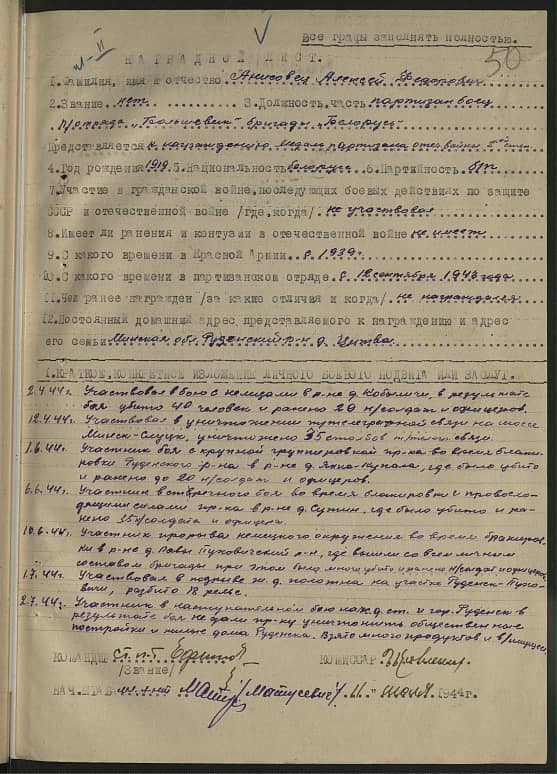 Все графы заполнять полностью.
50
НАГРАДНОЙ ЛИСТ.
1.Фамилия, имя и отчество Анисовец Алексей Федорович
2.Звание нет 3.Должность,часть партизан боец
п/отряда „Большевик" бригады „Беларусь"
Представляется к награждению медаль партизана отеч. войны
4.Год рождения 1919 5.Национальность белорус 6.Партийность б/п
7.Участие в гражданской войне,последующих боевых действиях по защите
СССР и отечественной войне /где,когда/ не участвовал
8.Имеет ли ранения и контузии в отечественной войне не имеет
9.С какого времени в Красной Армии с 1939 г.
10.С какого времени в партизанском отряде с 18 сентября 1943 года
11.Чем ранее награжден /за какие отличия и когда/ не награждался
12.Постоянный домашний адрес представляемого к награждению и адрес
его семьи Минская обл. Руденский р-н д. Цитва
1.КРАТКОЕ,КОНКРЕТНОЕ ИЗЛОЖЕНИЕ ЛИЧНОГО БОЕВОГО ПОДВИГА ИЛИ ЗАСЛУГ.
2.4.44г. Участвовал в бою с немцами в р-не д. Кобыличи, в результате
боя убито 40 человек и ранено 20 н/солдат и офицеров.
12.4.44г. Участвовал в уничтожении телеграфной связи на шоссе
Минск-Слуцк, уничтожено 35 столбов связи.
1.6.44г. Участник боя с крупной группировкой пр-ка во время блоки-
ровки Руденского р-на в р-не д. Янка-Купала, где было убито
и ранено до 20 н/солдат и офицеров.
6.6.44г. Участник встречного боя во время блокировки с превосхо-
дящими силами пр-ка в р-не д. Сутин, где было убито и ра-
нено 35 н/солдат и офицера.
10.6.44г. Участник прорыва немецкого окружения во время блокиров-
ки в р-не д. Пуховичский р-н, где вышли со всем личным
составом бригады при этом было много убито и ранено н/солдат и офицеров
1.7.44г. Участвовал в подрыве ж.д. полотна на участке Руденск-Пухо-
вичи, разбито 18 рельс.
2.7.44г. Участник в наступательном бою на ж.д. ст. и гор. Руденск в
результате боя не дали пр-ку уничтожить общественные
постройки и жилые дома Руденска. Взято много продуктов и
КОМАНДИР ст. л-т КОМИССАР
/Звание/
НАЧ.ШТАБА /Матусевич/ „11" июля 1944г.